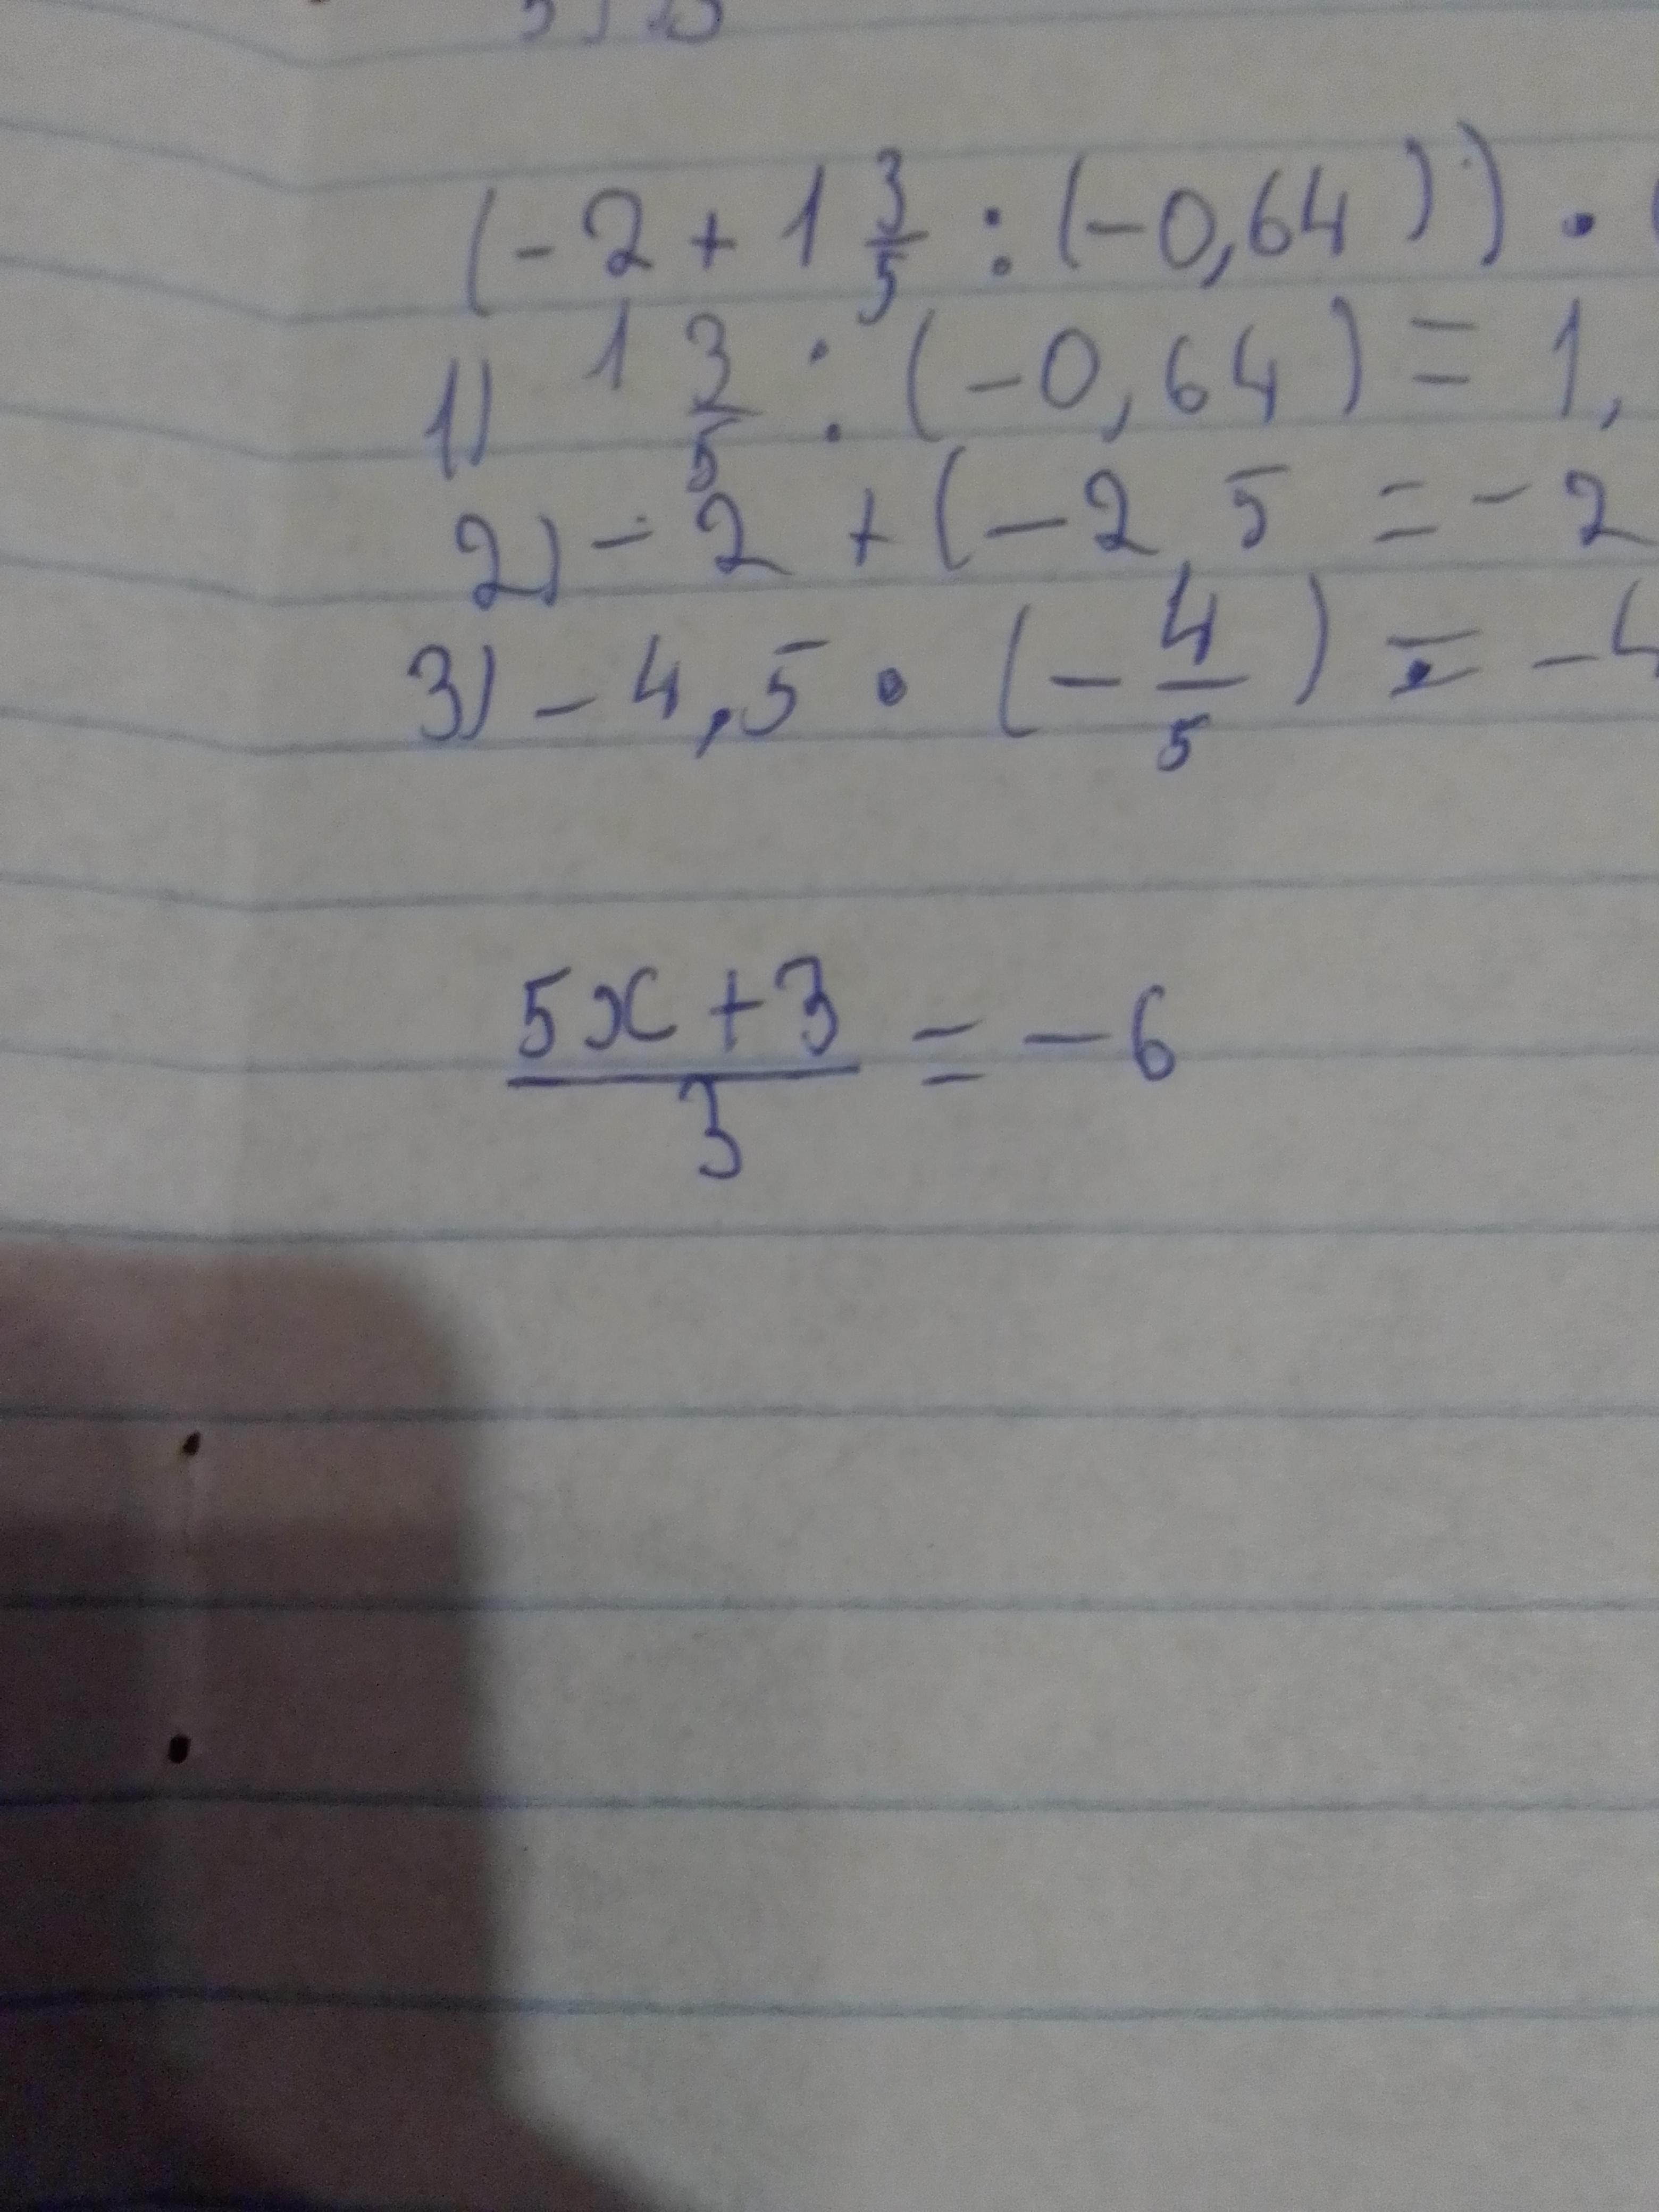 (-2 + 1 3/5 : (-0,64)) · (
1) 1 3/5 : (-0,64) = 1,
2) -2 + (-2,5 = -2
3) -4,5 · (-4/5) = -4
(5x + 3)/3 = -6